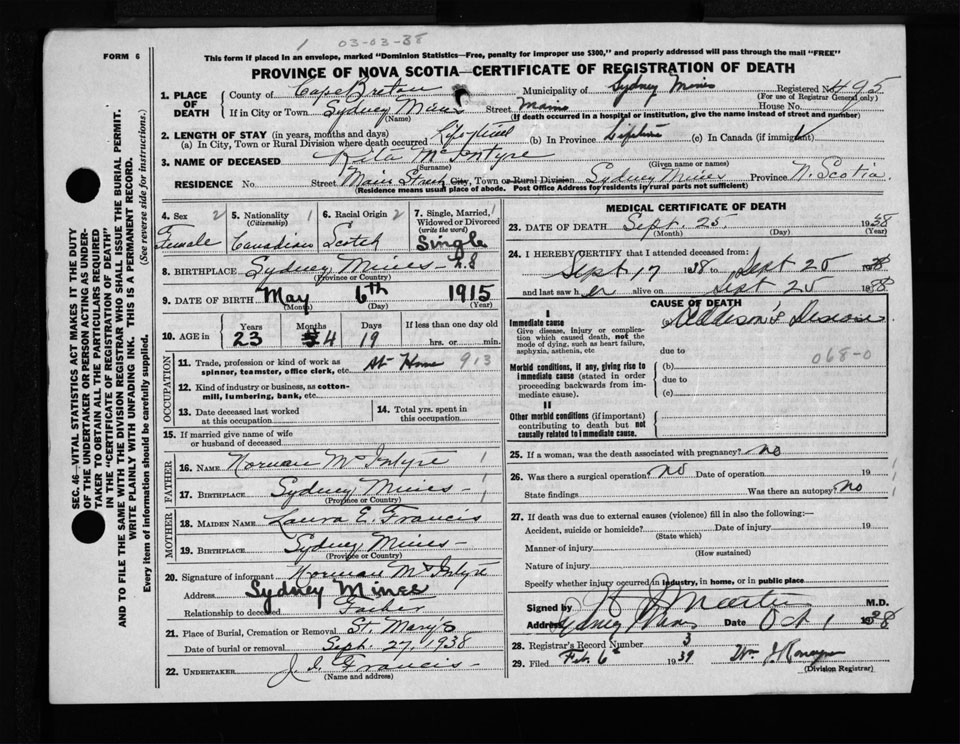 1 03-03-38
FORM 6
This form if placed in an envelope, marked "Dominion Statistics—Free, penalty for improper use $300," and properly addressed will pass through the mail "FREE"
PROVINCE OF NOVA SCOTIA—CERTIFICATE OF REGISTRATION OF DEATH
1. PLACE OF DEATH
County of Cape Breton Municipality of Sydney Mines Registered No. 495
(For use of Registrar General only)
If in City or Town Sydney Mines Street Main House No.
(Name) (If death occurred in a hospital or institution, give the name instead of street and number)
2. LENGTH OF STAY (in years, months and days)
(a) In City, Town or Rural Division where death occurred Lifetime (b) In Province Lifetime (c) In Canada (if immigrant)
3. NAME OF DECEASED Rita McIntyre
(Surname) (Given name or names)
RESIDENCE No. Street Main Street City, Town or Rural Division Sydney Mines Province N. Scotia
(Residence means usual place of abode. Post Office Address for residents in rural parts not sufficient)
4. Sex 2 Female
5. Nationality 1 (Citizenship) Canadian
6. Racial Origin 2 Scotch
7. Single, Married, 1 Widowed or Divorced (write the word) Single
8. BIRTHPLACE Sydney Mines - N.S
(Province or Country)
9. DATE OF BIRTH May 6th 1915
(Month) (Day) (Year)
10. AGE in Years Months Days If less than one day old
23 4 19 hrs. or min.
OCCUPATION
11. Trade, profession or kind of work as spinner, teamster, office clerk, etc. At Home 913
12. Kind of industry or business, as cotton-mill, lumbering, bank, etc.
13. Date deceased last worked at this occupation
14. Total yrs. spent in this occupation
15. If married give name of wife or husband of deceased
FATHER
16. NAME Norman McIntyre 1
17. BIRTHPLACE Sydney Mines - 1
(Province or Country)
MOTHER
18. MAIDEN NAME Laura E. Francis
19. BIRTHPLACE Sydney Mines -
(Province or Country)
20. Signature of informant Norman McIntyre
Address Sydney Mines
Relationship to deceased Father
21. Place of Burial, Cremation or Removal St. Mary's
Date of burial or removal Sept. 27, 1938
22. UNDERTAKER J. D. Francis -
(Name and address)
MEDICAL CERTIFICATE OF DEATH
23. DATE OF DEATH Sept. 25. 1938
(Month) (Day) (Year)
24. I HEREBY CERTIFY that I attended deceased from:
Sept 17 1938 to Sept 25 1938
and last saw her alive on Sept 25 1938
CAUSE OF DEATH
I
Immediate cause (a) Addison's Disease
Give disease, injury or complication which caused death, not the mode of dying, such as heart failure, asphyxia, asthenia, etc
due to
068-0
Morbid conditions, if any, giving rise to immediate cause (stated in order proceeding backwards from immediate cause).
(b)
due to
(c)
II
Other morbid conditions (if important) contributing to death but not causally related to immediate cause.
25. If a woman, was the death associated with pregnancy? no
26. Was there a surgical operation? no Date of operation 19
State findings Was there an autopsy? no
27. If death was due to external causes (violence) fill in also the following:—
Accident, suicide or homicide? Date of injury 19
(State which)
Manner of injury
(How sustained)
Nature of injury
Specify whether injury occurred in industry, in home, or in public place
Signed by M.D.
Address Sydney Mines Date Oct 1 1938
28. Registrar's Record Number 3
29. Filed Feb 6 1939
(Division Registrar)
SEC. 46—VITAL STATISTICS ACT MAKES IT THE DUTY
OF THE UNDERTAKER OR PERSON ACTING AS UNDER-
TAKER TO OBTAIN ALL THE PARTICULARS REQUIRED
IN THE "CERTIFICATE OF REGISTRATION OF DEATH"
AND TO FILE THE SAME WITH THE DIVISION REGISTRAR WHO SHALL ISSUE THE BURIAL PERMIT.
WRITE PLAINLY WITH UNFADING INK. THIS IS A PERMANENT RECORD.
Every item of information should be carefully supplied. (See reverse side for instructions.)